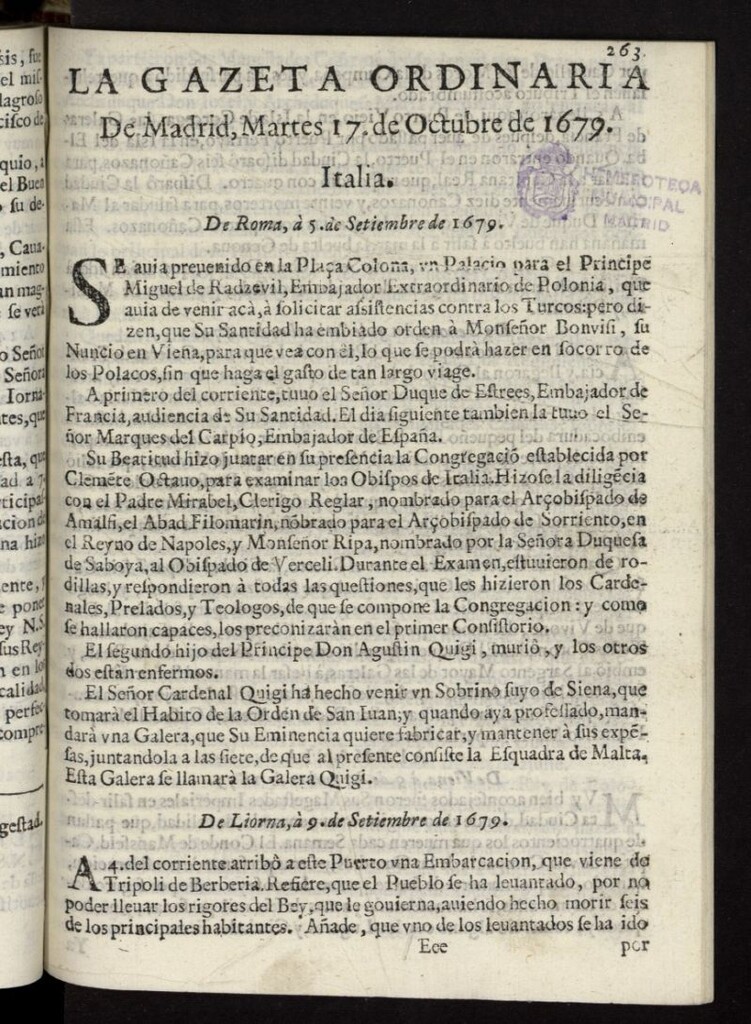 263.
LA GAZETA ORDINARIA
De Madrid, Martes 17. de Octubre de 1679.
Italia.
HEMEROTECA
MUNICIPAL
MADRID
De Roma, à 5. de Setiembre de 1679.
SE auia preuenido en la Plaça Colona, vn Palacio para el Principe
Miguel de Radzevil, Embajador Extraordinario de Polonia, que
auia de venir acà, à solicitar assistencias contra los Turcos: pero di-
zen, que Su Santidad ha embiado orden à Monseñor Bonvisi, su
Nuncio en Viena, para que vea con èl, lo que se podrà hazer en socorro de
los Polacos, sin que haga el gasto de tan largo viage.
A primero del corriente, tuuo el Señor Duque de Estrees, Embajador de
Francia, audiencia de Su Santidad. El dia siguiente tambien la tuuo el Se-
ñor Marques del Carpio, Embajador de España.
Su Beatitud hizo juntar en su presencia la Congregaciõ establecida por
Clemẽte Octauo, para examinar los Obispos de Italia. Hizose la diligẽcia
con el Padre Mirabel, Clerigo Reglar, nombrado para el Arçobispado de
Amalfi, el Abad Filomarin, nõbrado para el Arçobispado de Sorriento, en
el Reyno de Napoles, y Monseñor Ripa, nombrado por la Señora Duquesa
de Saboya, al Obispado de Verceli. Durante el Examen, estuuieron de ro-
dillas, y respondieron à todas las questiones, que les hizieron los Carde-
nales, Prelados, y Teologos, de que se compone la Congregacion: y como
se hallaron capaces, los preconizaràn en el primer Consistorio.
El segundo hijo del Principe Don Agustin Quigi, muriò, y los otros
dos estàn enfermos.
El Señor Cardenal Quigi ha hecho venir vn Sobrino suyo de Siena, que
tomarà el Habito de la Orden de San Iuan; y quando aya professado, man-
darà vna Galera, que Su Eminencia quiere fabricar, y mantener à sus expẽ-
sas, juntandola a las siete, de que al presente consiste la Esquadra de Malta.
Esta Galera se llamarà la Galera Quigi.
De Liorna, à 9. de Setiembre de 1679.
A 4. del corriente arribò a este Puerto vna Embarcacion, que viene de
Tripoli de Berberia. Refiere, que el Pueblo se ha leuantado, por no
poder lleuar los rigores del Bey, que le gouierna, auiendo hecho morir seis
de los principales habitantes. Añade, que vno de los leuantados se ha ido
Eee por